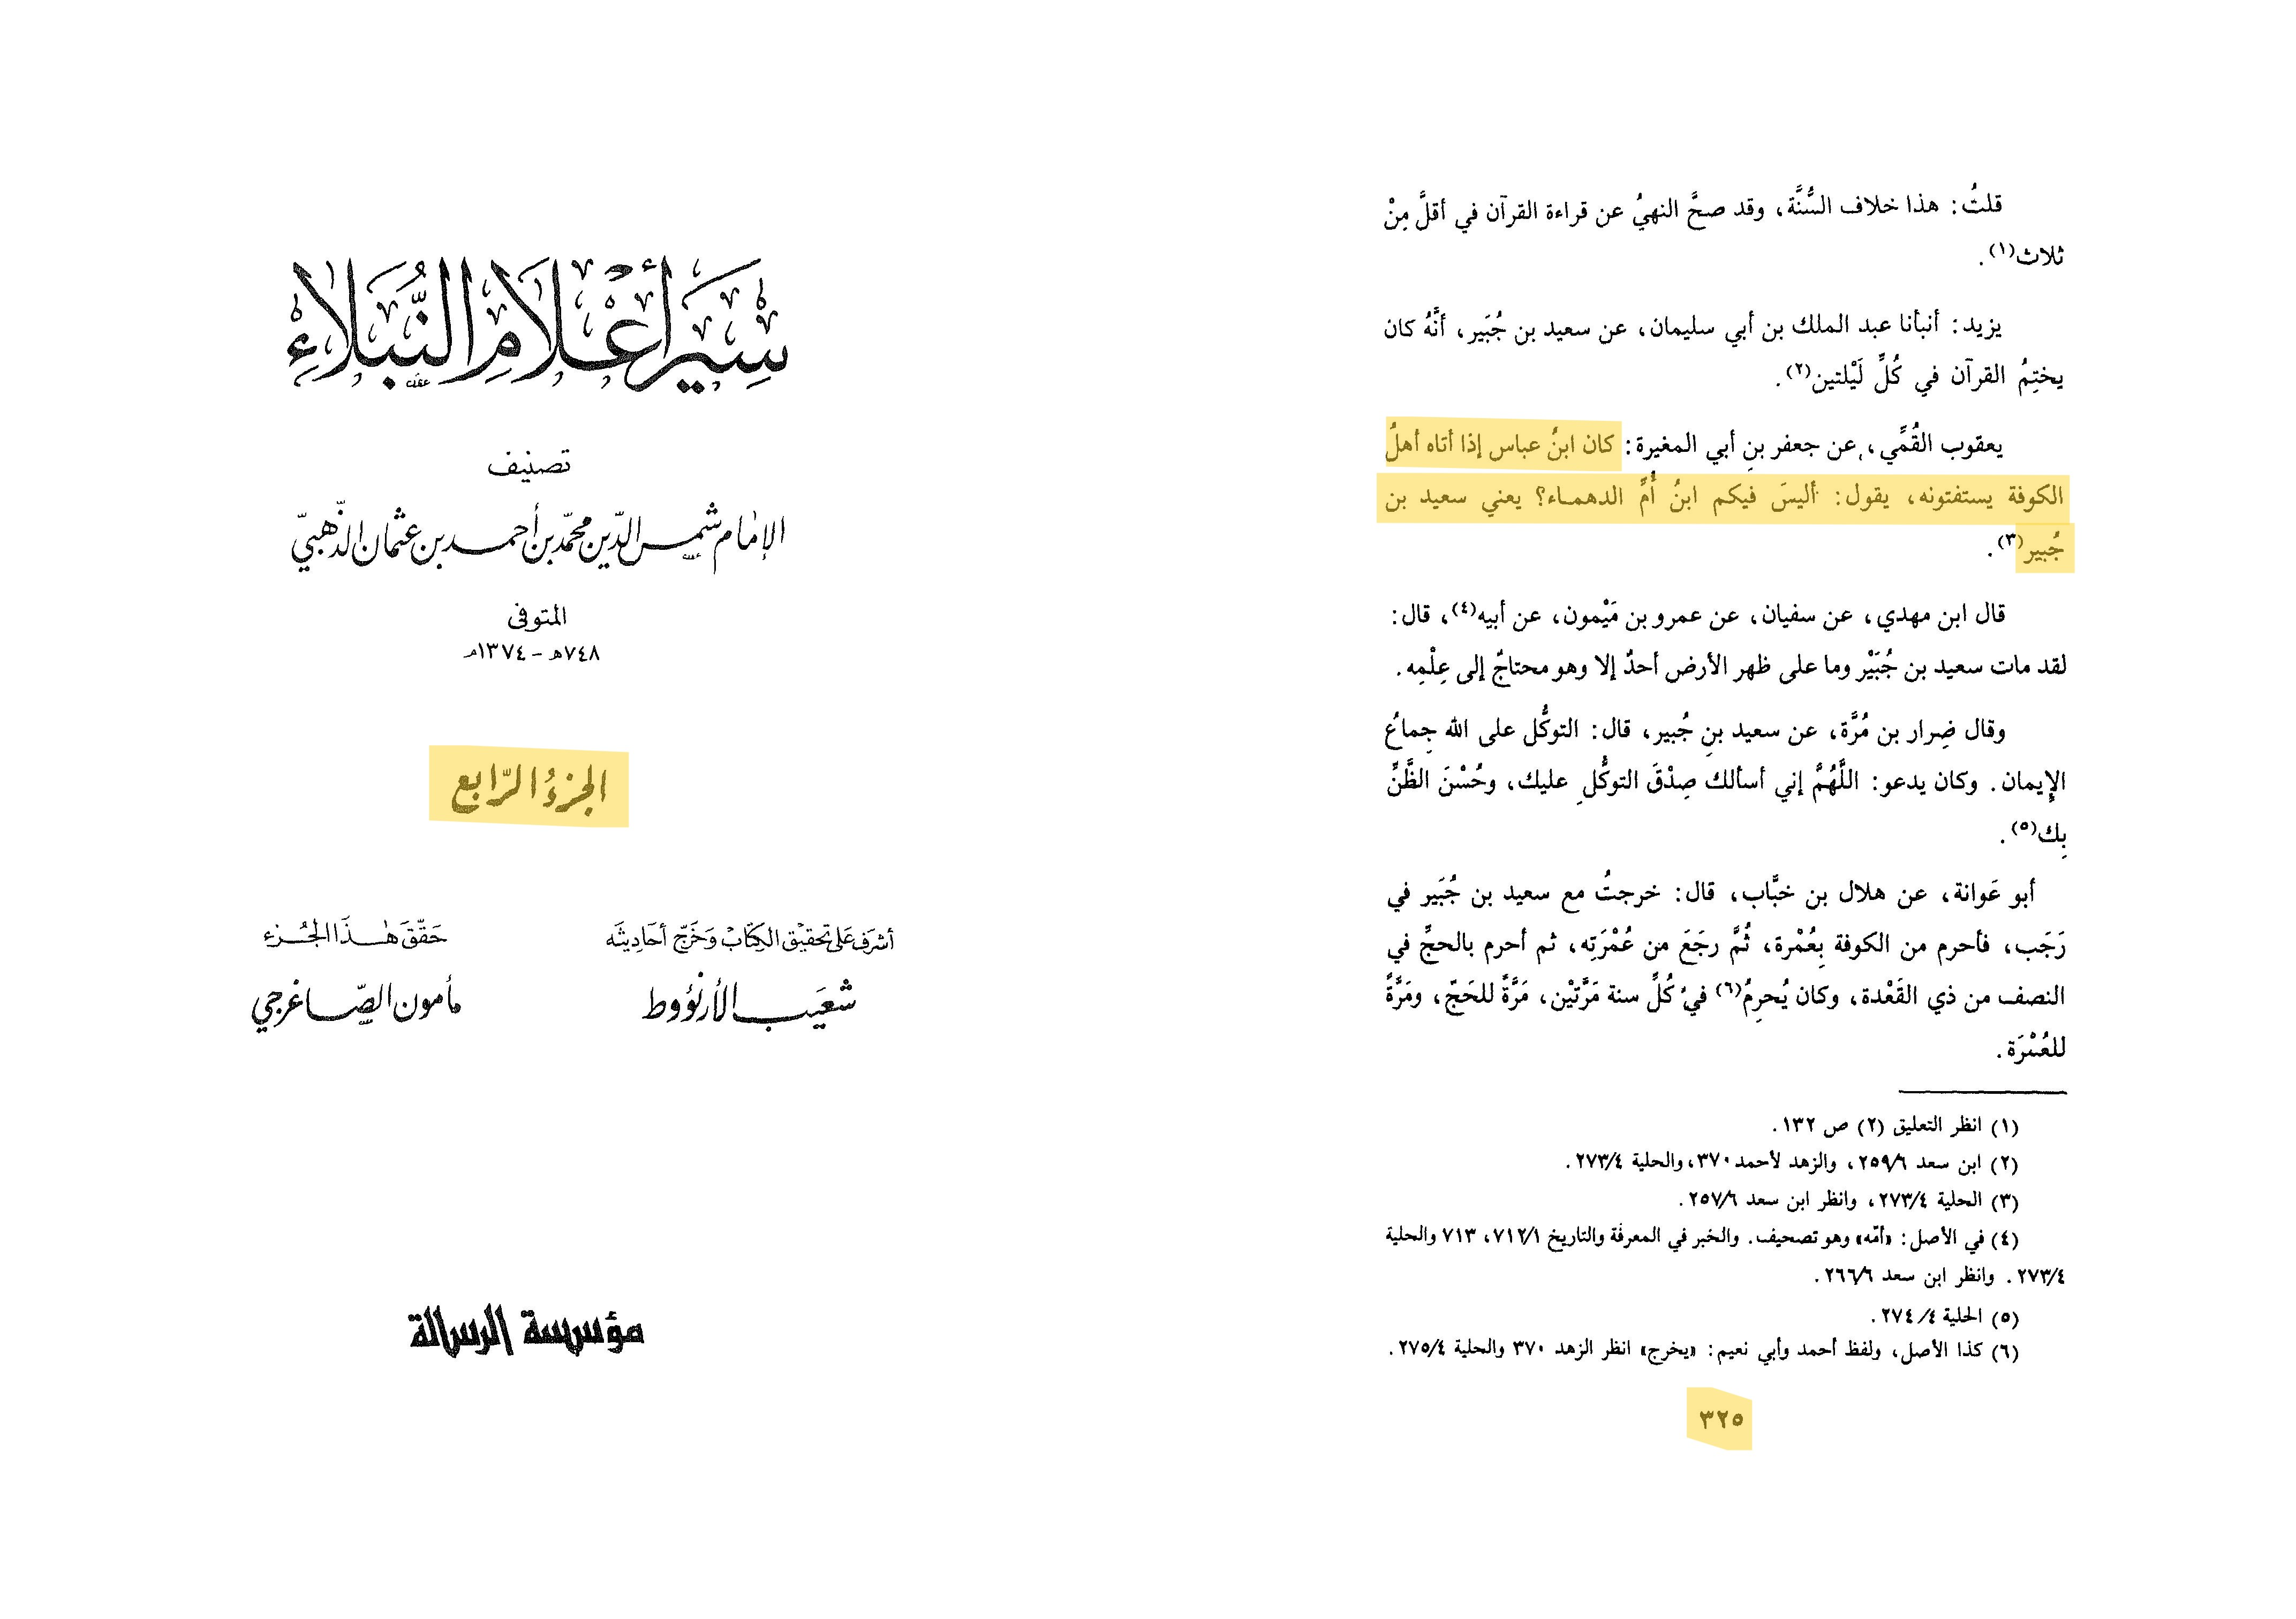 سِيَرُ أَعْلَامِ النُّبَلَاءِ
تصنيف
الإمام شمس الدّين محمّد بن أحمد بن عثمان الذّهبيّ
المتوفى
٧٤٨هـ - ١٣٧٤م
الجزءُ الرّابع
أشرَف عَلى تحقيق الكِتَاب وَخَرّج أحَاديثَه
حَقّقَ هٰذَا الجُزء
شعَيب الأرنؤوط
مأمون الصّاغرجي
مؤسسة الرسالة
قلتُ: هذا خلاف السُّنَّة، وقد صحَّ النهيُ عن قراءة القرآن في أقلَّ مِنْ
ثلاث(١).
يزيد: أنبأنا عبد الملك بن أبي سليمان، عن سعيد بن جُبَير، أنَّهُ كان
يختِمُ القرآن في كُلِّ لَيْلتين(٢).
يعقوب القُمِّي، عن جعفر بنِ أبي المغيرة: كان ابنُ عباس إذا أتاه أهلُ
الكوفة يستفتونه، يقول: أليسَ فيكم ابنُ أُمِّ الدهماء؟ يعني سعيد بن
جُبير(٣).
قال ابن مهدي، عن سفيان، عن عمرو بن مَيْمون، عن أبيه(٤)، قال:
لقد مات سعيد بن جُبَيْر وما على ظهر الأرض أحدٌ إلا وهو محتاجٌ إلى عِلْمِه.
وقال ضِرار بن مُرَّة، عن سعيد بنِ جُبير، قال: التوكُّل على الله جِماعُ
الإِيمان. وكان يدعو: اللَّهُمَّ إني أسألك صِدْقَ التوكُّلِ عليك، وحُسْنَ الظَّنِّ
بِك(٥).
أبو عَوانة، عن هلال بن خبَّاب، قال: خرجتُ مع سعيد بن جُبَير في
رَجَب، فأحرم من الكوفة بِعُمْرة، ثُمَّ رجَعَ من عُمْرَتِه، ثم أحرم بالحجِّ في
النصف من ذي القَعْدة، وكان يُحرِمُ(٦) في كُلِّ سنة مَرَّتيْن، مَرَّةً للحَجّ، ومَرَّةً
للعُمْرَة.
(١) انظر التعليق (٢) ص ١٣٢.
(٢) ابن سعد ٢٥٩/٦، والزهد لأحمد ٣٧٠، والحلية ٢٧٣/٤.
(٣) الحلية ٢٧٣/٤، وانظر ابن سعد ٢٥٧/٦.
(٤) في الأصل: «أمّه» وهو تصحيف. والخبر في المعرفة والتاريخ ٧١٢/١، ٧١٣ والحلية
٢٧٣/٤. وانظر ابن سعد ٢٦٦/٦.
(٥) الحلية ٢٧٤/٤.
(٦) كذا الأصل، ولفظ أحمد وأبي نعيم: «يخرج» انظر الزهد ٣٧٠ والحلية ٢٧٥/٤.
٣٢٥